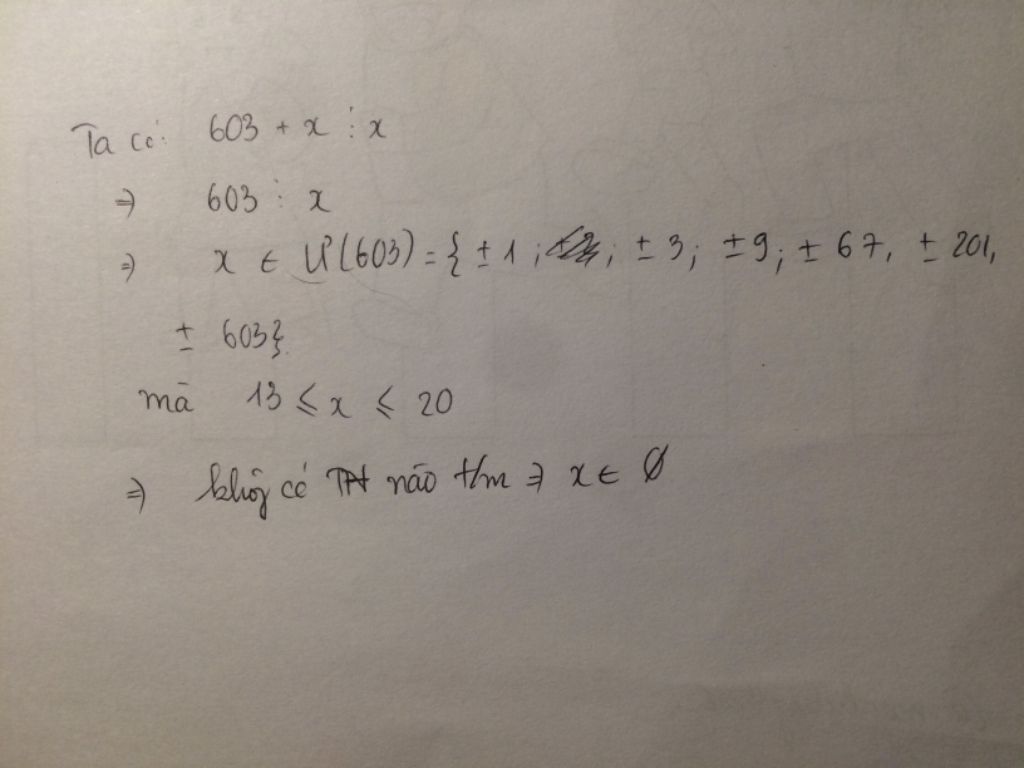 Ta có: 603 + x ⋮ x
⇒ 603 ⋮ x
⇒ x ∈ Ư(603) = {± 1; ± 3; ± 9; ± 67, ± 201,
± 603}
mà 13 ⩽ x ⩽ 20
⇒ khôg có TH nào t/m ⇒ x ∈ ∅